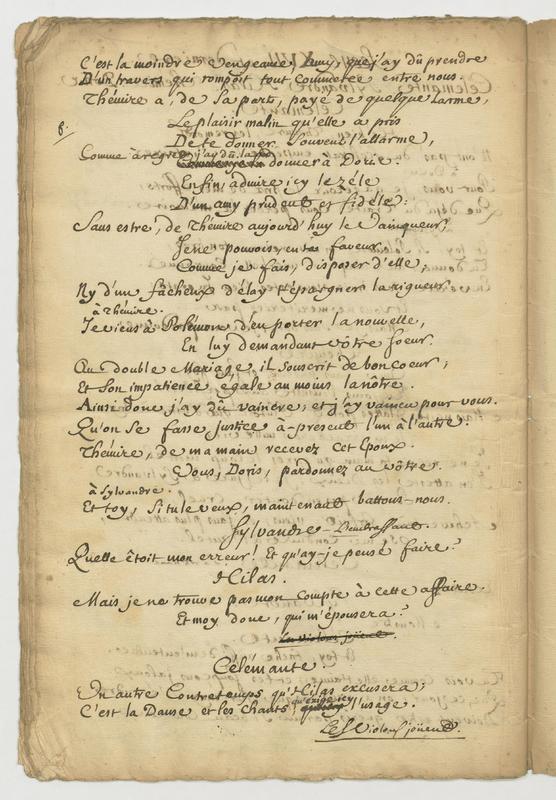 C'est la moindre vengeance, Amy, que j'ay dû prendre
D'un travers qui rompoit tout commerce entre nous.
Thémire a, de sa part, payé de quelque larme,
Le plaisir malin qu'elle a pris
De te donner souvent l'allarme,
Comme à regret j'ay dû la donner à Doris.
Enfin, admire icy le zéle
D'un amy prudent et fidéle:
Sans estre, de Thémire aujourd'huy le Vainqueur,
Je ne pouvois, en ta faveur,
Comme je fais, disposer d'elle,
Ny d'un fâcheux délay t'épargner la rigueur.
à Thémire.
Je viens à Polémon d'en porter la nouvelle,
En luy demandant vôtre soeur.
Au double Mariage, il souscrit de bon coeur;
Et son impatience égale au moins la nôtre.
Ainsi donc j'ay dû vaincre, et j'ay vaincu pour vous.
Qu'on se fasse justice à-présent l'un à l'autre.
Thémire, de ma main recevez cet Epoux.
Vous, Doris, pardonnez au vôtre.
à Sylvandre.
Et toy, si tu le veux, maintenant battons-nous.
Sylvandre l'embrassant.
Quelle étoit mon erreur! Et qu'ay-je pensé faire?
Hilas.
Mais je ne trouve pas mon compte à cette affaire.
Et moy donc, qui m'épousera?
Les violons joüent.
Célémante.
Un autre Contretemps qu'Hilas excusera;
C'est la Danse et les Chants qu'exige icy l'usage.
Les Violons joüent.